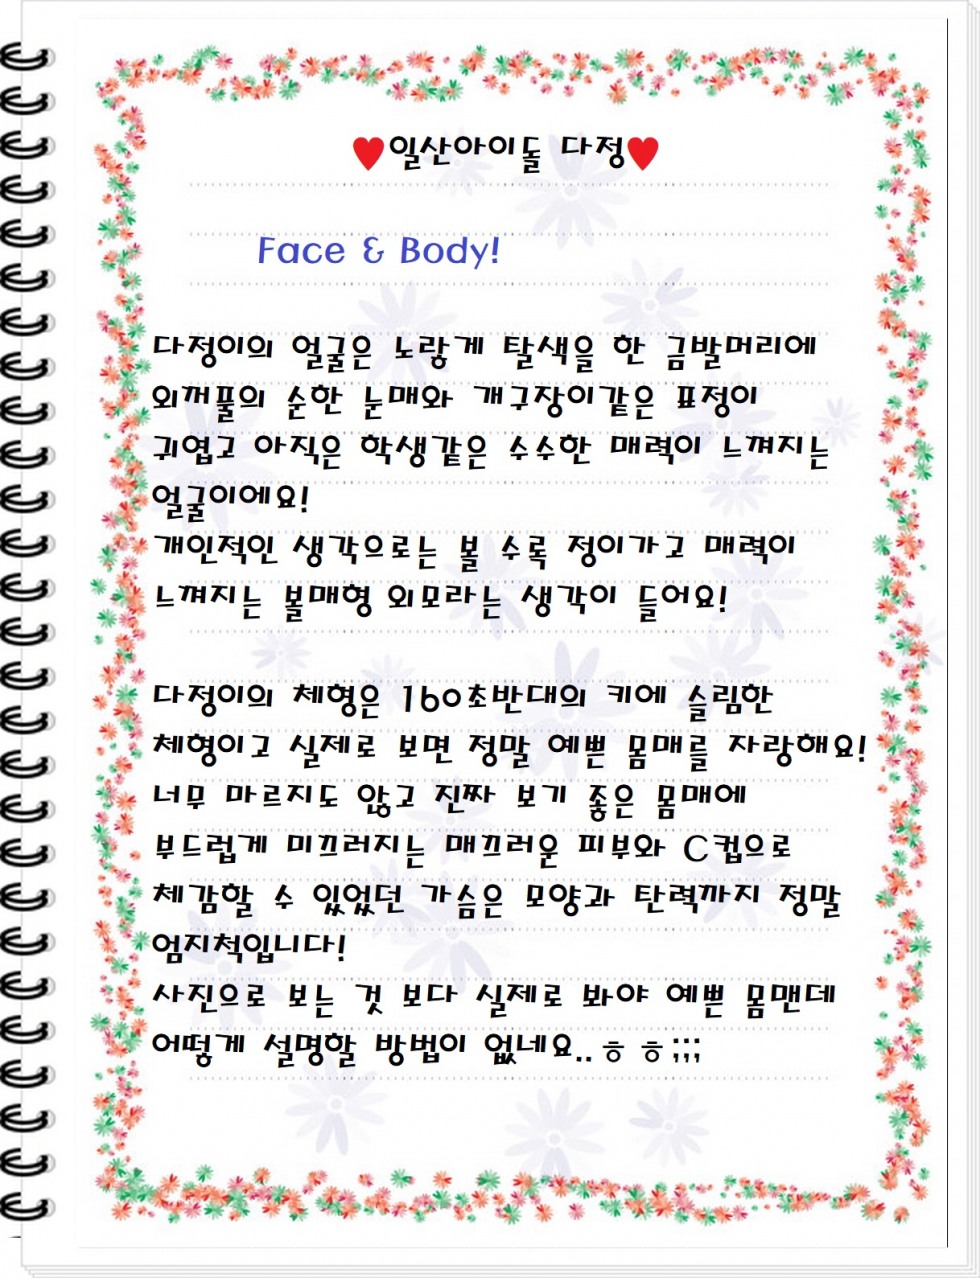 ♥일산아이돌 다정♥
Face & Body!
다정이의 얼굴은 노랗게 탈색을 한 금발머리에
외꺼풀의 순한 눈매와 개구장이같은 표정이
귀엽고 아직은 학생같은 수수한 매력이 느껴지는
얼굴이에요!
개인적인 생각으로는 볼 수록 정이가고 매력이
느껴지는 볼매형 외모라는 생각이 들어요!
다정이의 체형은 160초반대의 키에 슬림한
체형이고 실제로 보면 정말 예쁜 몸매를 자랑해요!
너무 마르지도 않고 진짜 보기 좋은 몸매에
부드럽게 미끄러지는 매끄러운 피부와 C컵으로
체감할 수 있었던 가슴은 모양과 탄력까지 정말
엄지척입니다!
사진으로 보는 것 보다 실제로 봐야 예쁜 몸맨데
어떻게 설명할 방법이 없네요..ㅎㅎ;;;